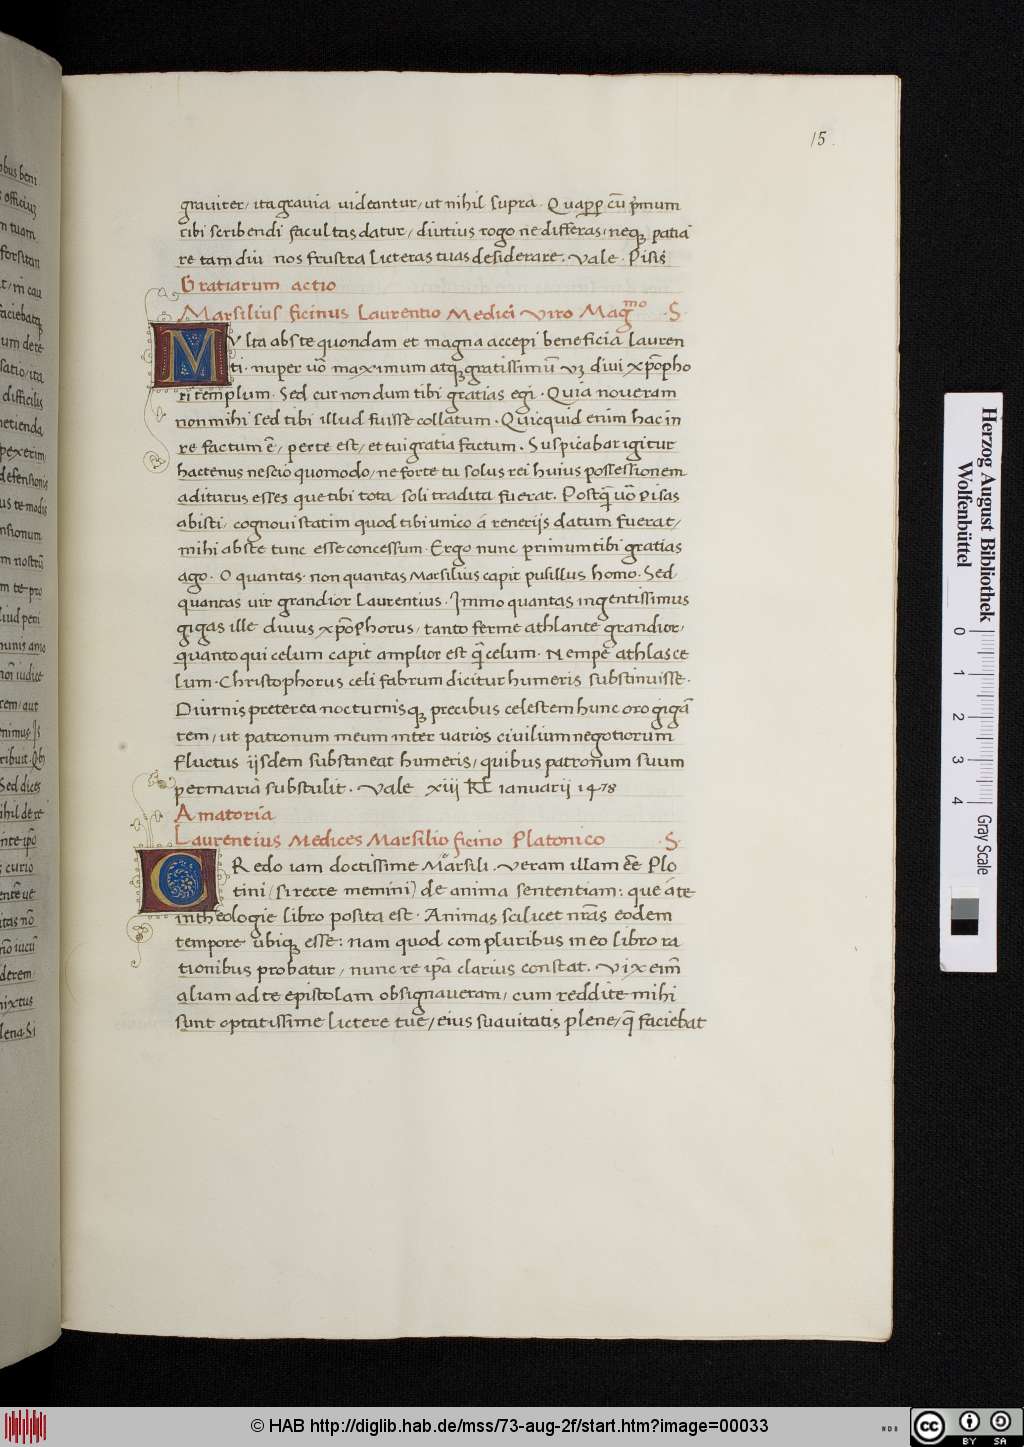 15.
grauiter, ita grauia uideantur, ut nihil supra. Quapp̱ cū p̄mum
tibi scribendi facultas datur, diutius rogo ne differas, neq; patiā
re tam diu nos frustra licteras tuas desiderare. Vale. Pisis
Gratiarum actio
Marsilius ficinus Laurentio Medici Viro Magmo .S.
MVlta abs te quondam et magna accepi beneficia Lauren
ti. nuper uō maximum atq; gratissimū uʒ diui xp̄opho
ri templum. Sed cur nondum tibi gratias egi. Quia noueram
non mihi sed tibi illud fuisse collatum. Quicquid enim hac in
re factum ē, per te est, et tui gratia factum. Suspicabar igitur
hactenus nescio quomodo, ne forte tu solus rei huius possessionem
aditurus esses que tibi tota soli tradita fuerat. Postq̄ uō Pisas
abisti, cognoui statim quod tibi unico á reneriis datum fuerat,
mihi abs te tunc esse concessum. Ergo nunc primum tibi gratias
ago. O quantas. non quantas Marsilius capit pusillus homo. Sed
quantas uir grandior Laurentius. Immo quantas ingentissimus
gigas ille diuus xp̄ophorus, tanto ferme athlante grandior,
quanto qui celum capit amplior est q̄ celum. Nempe athlas ce
lum. Christophorus celi fabrum dicitur humeris substinuisse.
Diurnis preterea nocturnisq; precibus celestem hunc oro gigā
tem, ut patronum meum inter uarios ciuilium negotiorum
fluctus iisdem substineat humeris, quibus patronum suum
per maria substulit. Vale xiii KL ianuarii 1478
Amatoria
Laurentius Medices Marsilio ficino Platonico .S.
CRedo iam doctissime Marsili. Veram illam eē Plo
tini (si recte memini) de anima sententiam: que á te
in theologie libro posita est. Animas scilicet nr̄as eodem
tempore ubiq; esse: nam quod compluribus in eo libro ra
tionibus probatur, nunc re ip̄a clarius constat. Vix eim̄
aliam ad te epistolam obsignaueram, cum reddite mihi
sunt optatissime lictere tue, eius suauitatis plene, q̄ faciebat
Herzog August Bibliothek
Wolfenbüttel
0 1 2 3 4
Gray Scale
© HAB http://diglib.hab.de/mss/73-aug-2f/start.htm?image=00033
WDB
cc BY SA